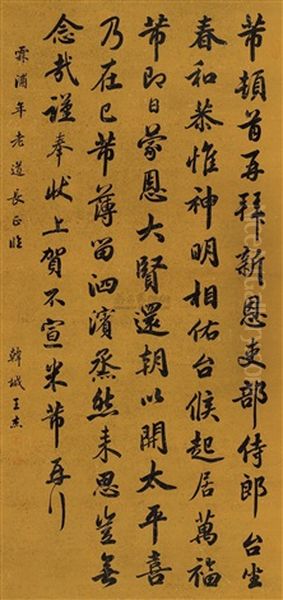 芾頓首再拜新恩吏部侍郎台坐
春和恭惟神明相佑台候起居萬福
芾即日蒙恩大賢還朝以開太平喜
乃在已芾薄留泗濱烝然來思豈無
念哉謹奉狀上賀不宣米芾再行
霖浦年老道長正臨
韓城王杰